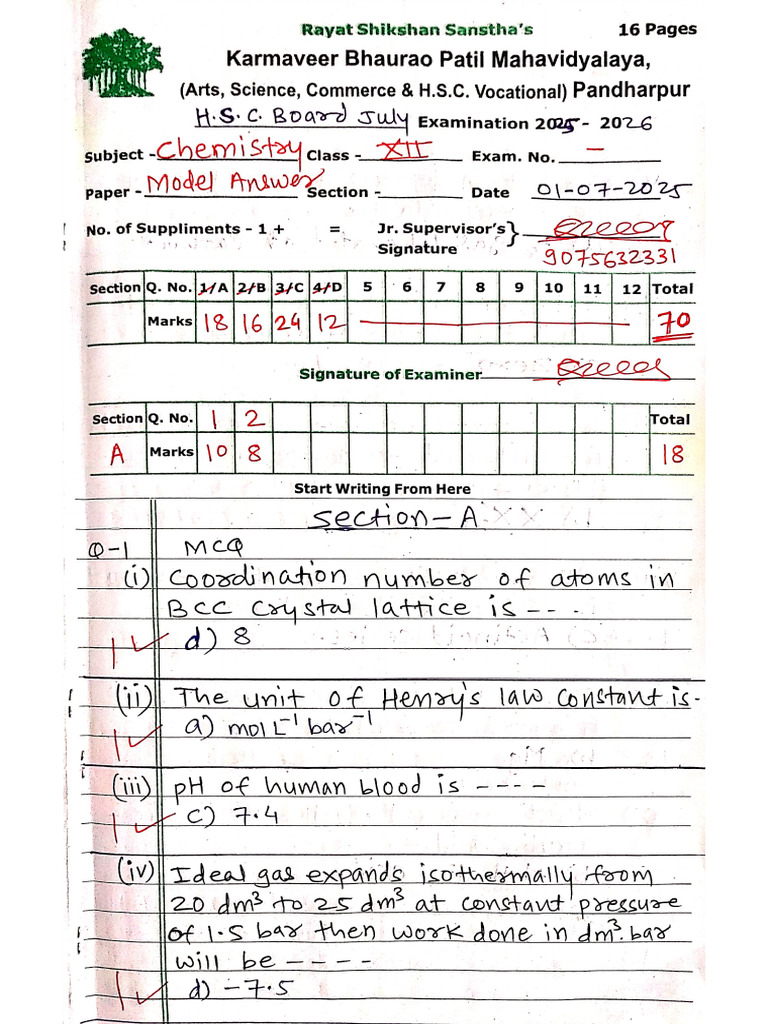 Rayat Shikshan Sanstha's 16 Pages
Karmaveer Bhaurao Patil Mahavidyalaya,
(Arts, Science, Commerce & H.S.C. Vocational) Pandharpur
H.S.C. Board July Examination 2025 - 2026
Subject - Chemistry Class - XII Exam. No. -
Paper - Model Answer Section - Date 01-07-2025
No. of Suppliments - 1 + = Jr. Supervisor's
Signature
9075632331
Section Q. No. 1/A 2/B 3/C 4/D 5 6 7 8 9 10 11 12 Total
Marks 18 16 24 12 70
Signature of Examiner
Section Q. No. 1 2 Total
A Marks 10 8 18
Start Writing From Here
Section-A
Q-1 MCQ
(i) Coordination number of atoms in
BCC Crystal lattice is ---
1 ✓ d) 8
(ii) The unit of Henry's law constant is-
1 ✓ a) mol L⁻¹ bar⁻¹
(iii) pH of human blood is ----
1 ✓ c) 7.4
(iv) Ideal gas expands isothermally from
20 dm³ to 25 dm³ at constant pressure
of 1.5 bar then work done in dm³.bar
will be ----
1 ✓ d) -7.5